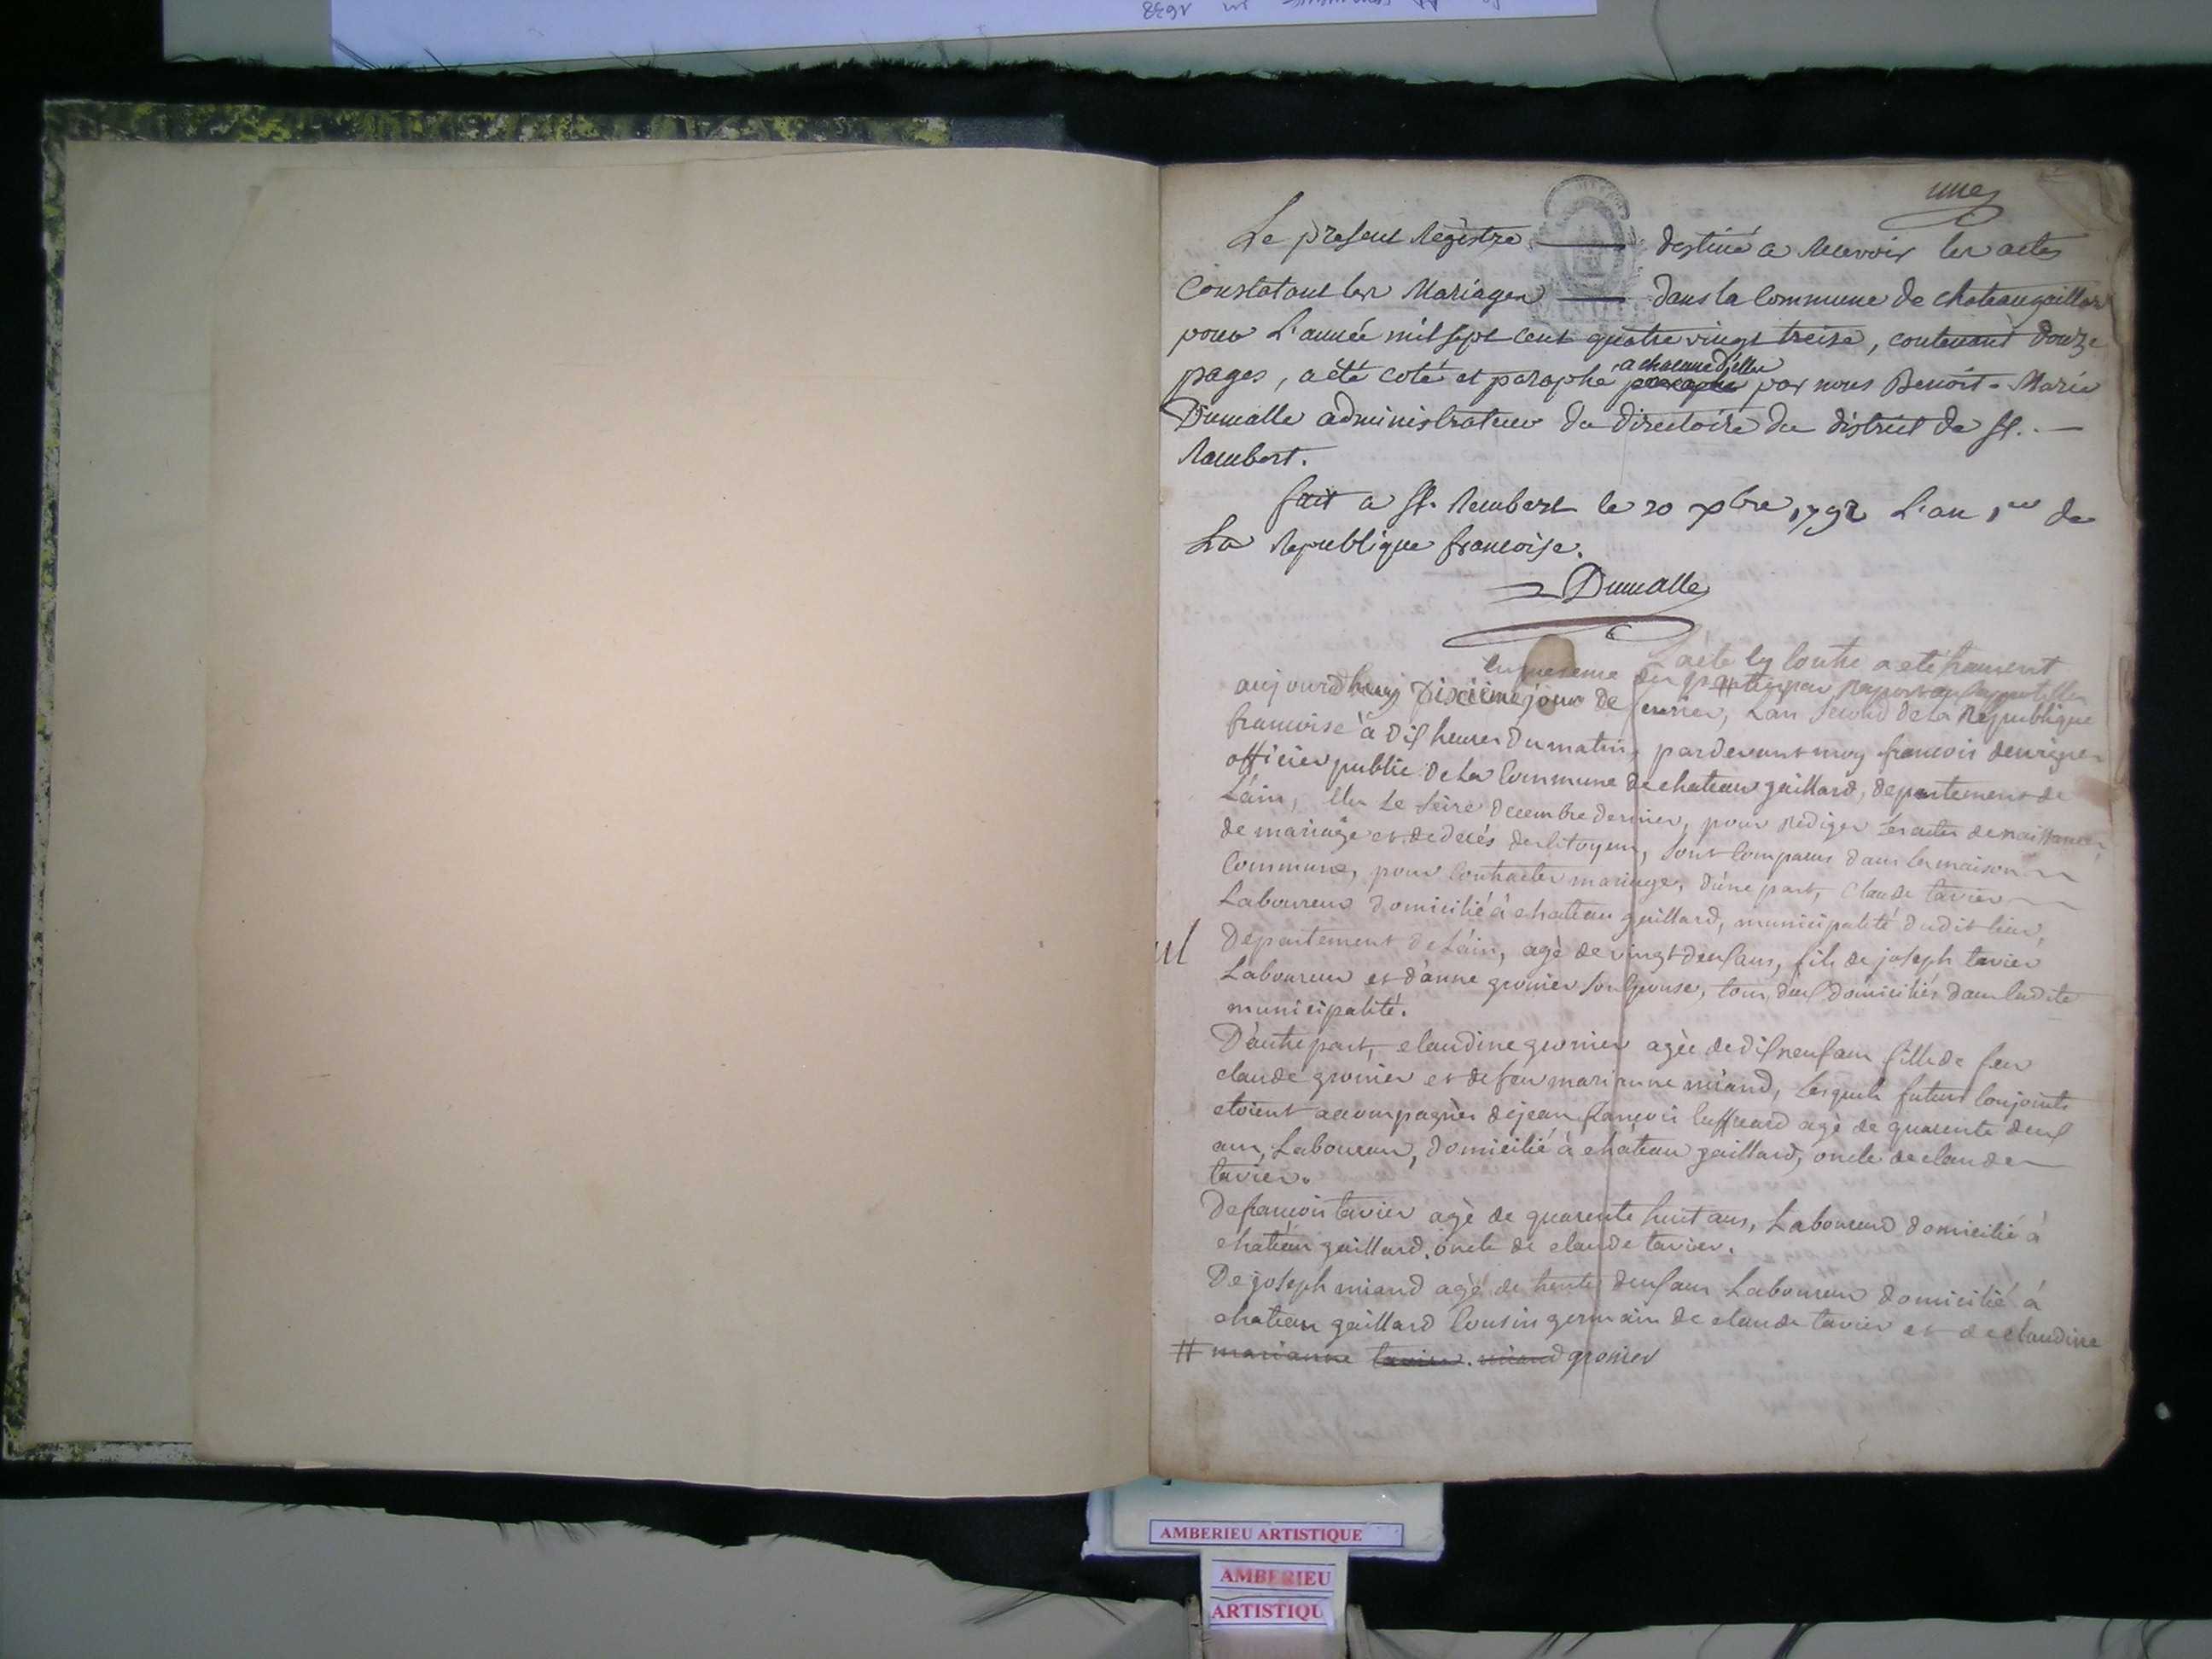 une
Le present Régistre destiné a recevoir les actes
Constatant les Mariages dans la Commune de chateaugaillard
pour L'année mil sept cent quatre vingt treise, contenant douze
pages, a été coté et paraphé a chacune d'elles par nous Benoit-Marie
Dumalle administrateur du directoire du district de St.
Rambert.
fait a St. Rambert le 20 xbre 1792 L'an 1er de
La Republique francoise.
Dumalle
L'acte cy contre a eté
aujourd'huy Dixiéme jour de Janvier, L'an second de La Republique
francoise à dix heures du matin, pardevant moy francois
officier public de La Commune de chateau gaillard, departement de
L'ain, elu Le seize decembre dernier, pour rediger Les actes de naissances,
de mariage et de decés des Citoyens, sont comparus dans la maison
Commune, pour contracter mariage, d'une part, Claude tavier
Laboureur domicilié à chateau gaillard, municipalité dudit lieu,
Departement de L'ain, agé de vingt deux ans, fils de joseph tavier
ul
Laboureur et d'anne gronier son epouse, tous deux domiciliés dans ladite
municipalité.
D'autre part, claudine gronier agée de dix neuf ans fille de feu
claude gronier et de feu marianne miand, Lesquels futurs conjoints
etoient accompagnés de jean francois agé de quarente deux
ans, Laboureur, domicilié à château gaillard, oncle de claude
tavier.
De francois tavier agé de quarente huit ans, Laboureur domicilié à
chatéau gaillard, oncle de claude tavier.
De joseph miand agé de trente deux ans Laboureur domicilié à
chateau gaillard Cousin germain de claude tavier et de claudine
# marianne tavier. miand gronier
AMBERIEU ARTISTIQUE
AMBERIEU
ARTISTIQU